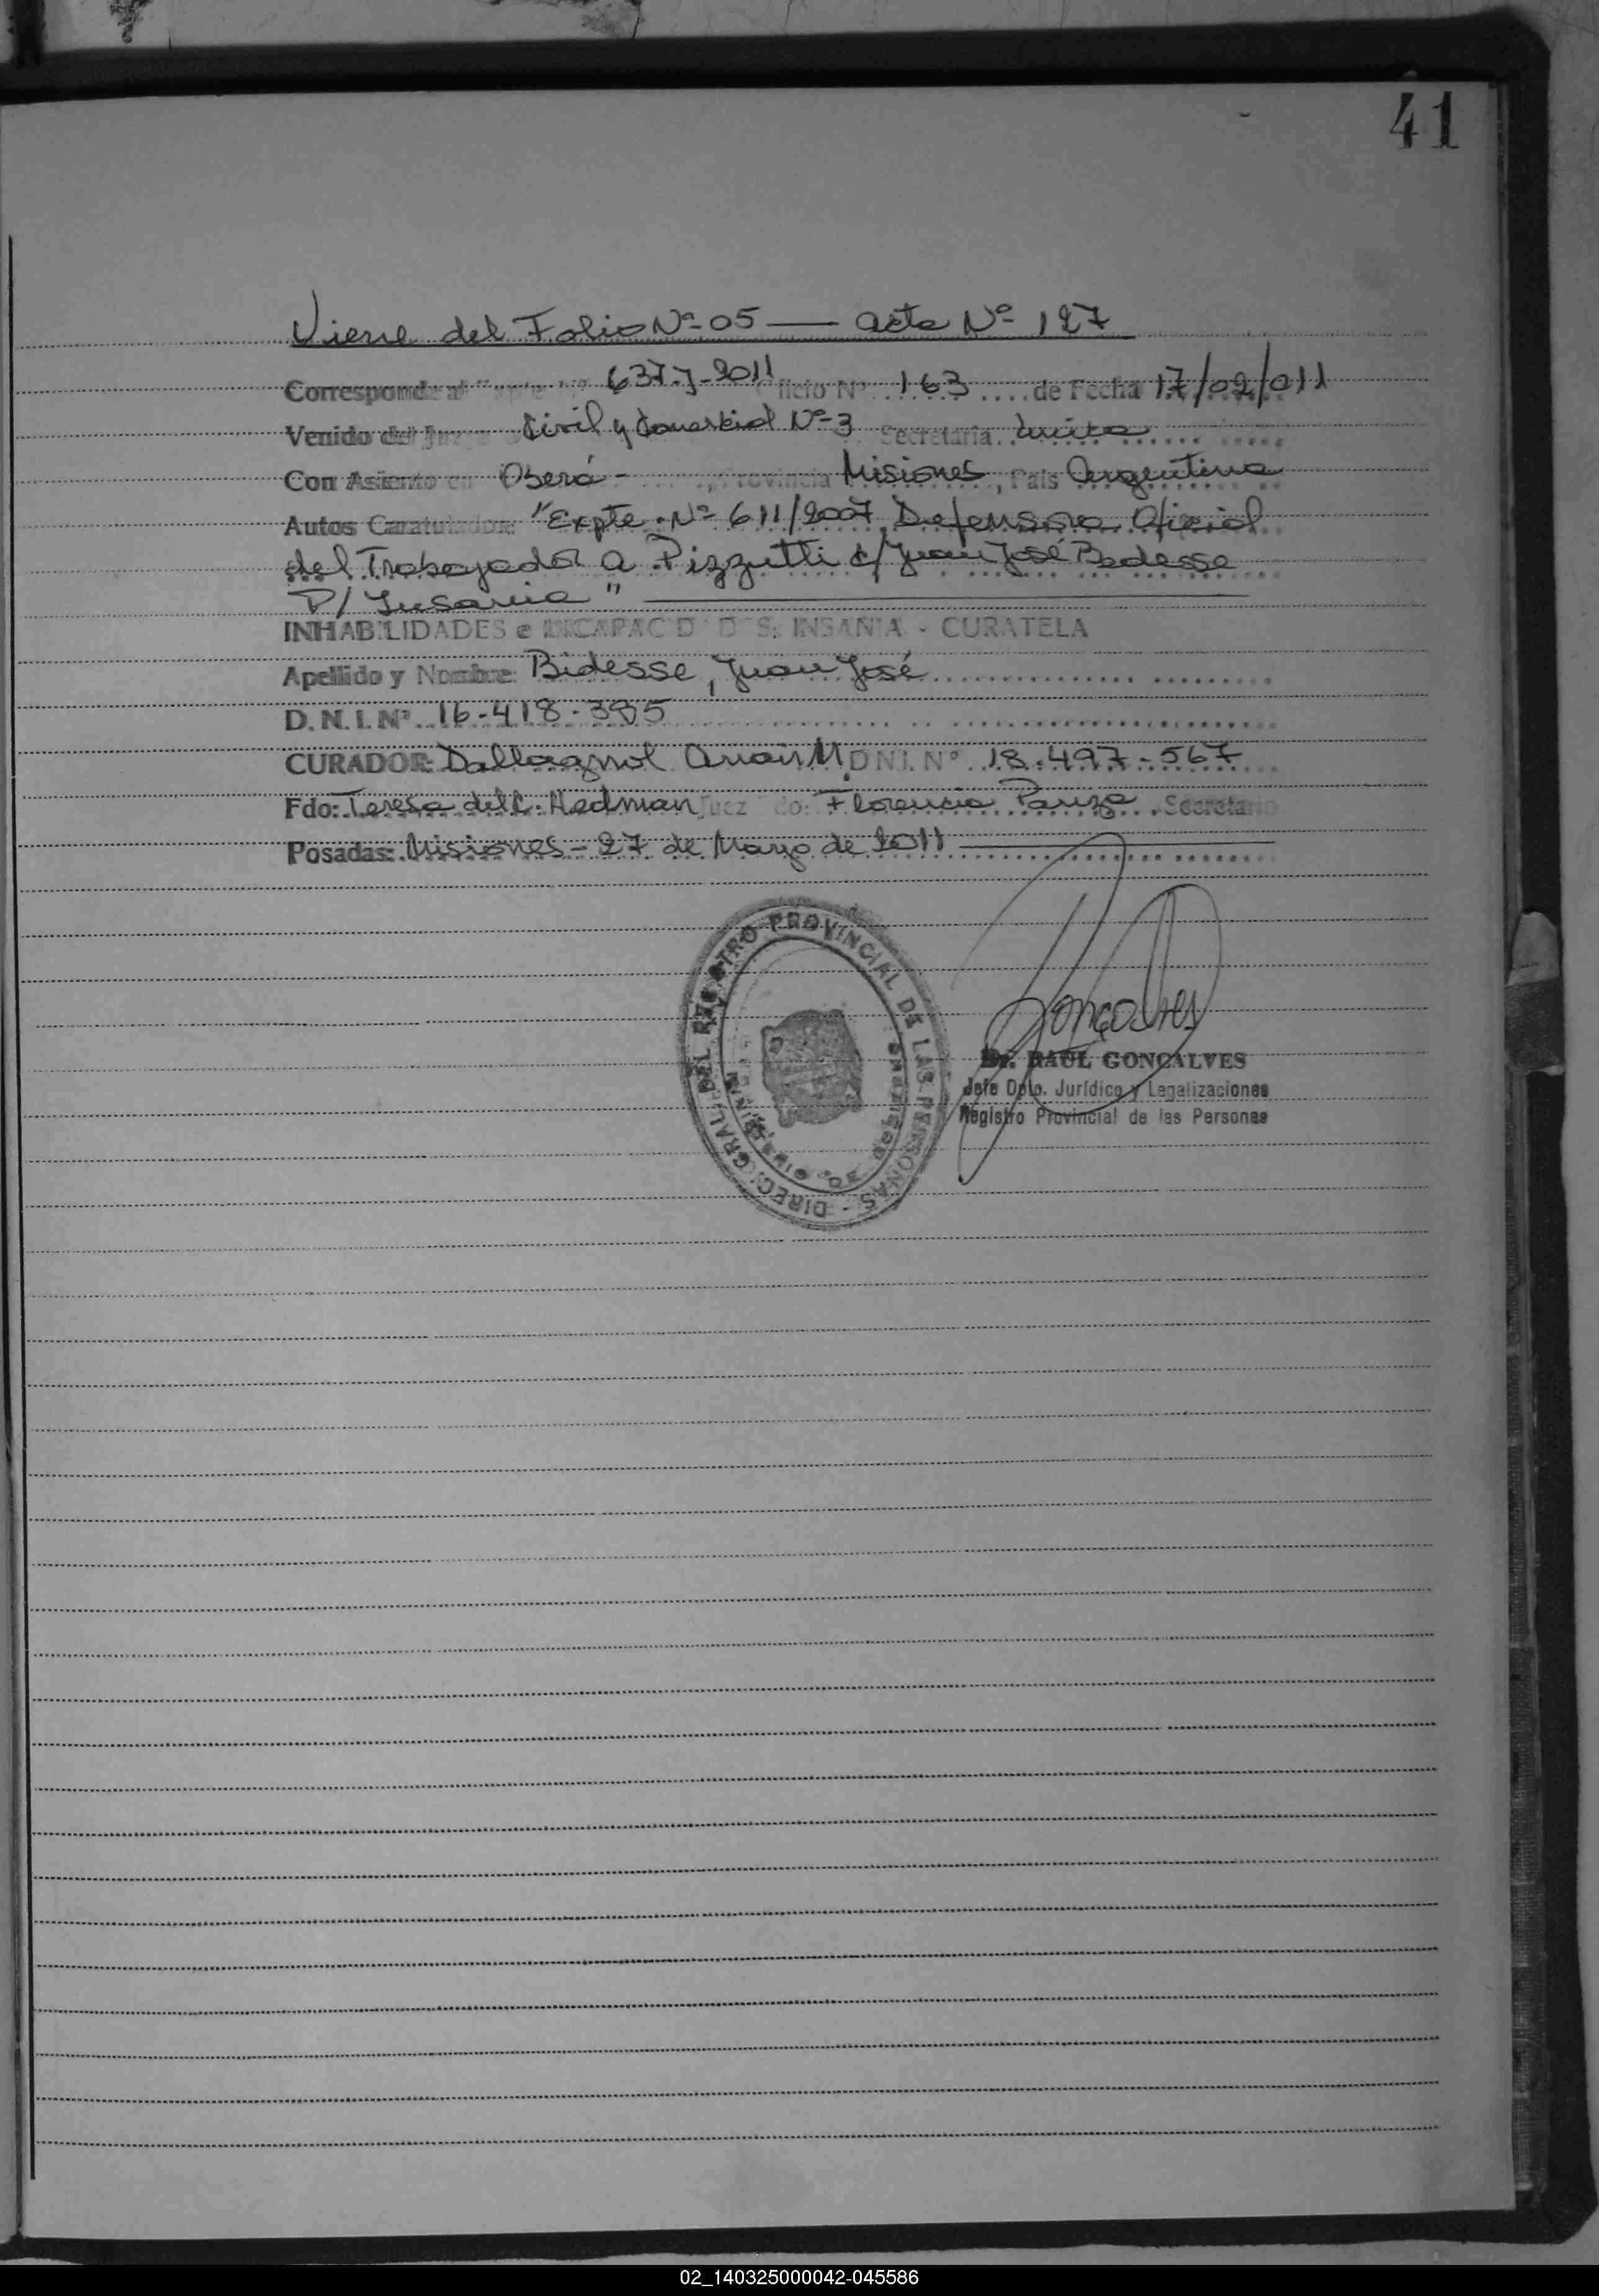 41
Viene del Folio Nº 05 — Acta Nº 127
Corresponde al Expte Nº 637-J-2011 Oficio Nº 163 de Fecha 17/02/011
Venido del Juz Civil y Comercial Nº 3 Secretaría Unica
Con Asiento en Oberá - , Provincia Misiones, País Argentina
Autos Caratulados: "Expte. Nº 611/2007, Defensora Oficial
del Trabajador a Pizzutti c/ Juan José Bedesse
P/ Insania"
INHABILIDADES e INCAPACIDADES: INSANIA - CURATELA
Apellido y Nombre: Bidesse, Juan José
D.N.I. Nº 16-418-385
CURADOR: Dallagnol M. D.N.I. Nº 18.497-567
Fdo: Teresa del C. Hedman Juez Fdo: Florencia Secretario
Posadas: Misiones - 27 de Marzo de 2011
DIREC. GRAL. DEL REGISTRO PROVINCIAL DE LAS PERSONAS -
Gonçalves
Dr. RAUL GONÇALVES
Jefe Dpto. Jurídico y Legalizaciones
Registro Provincial de las Personas
02_140325000042-045586